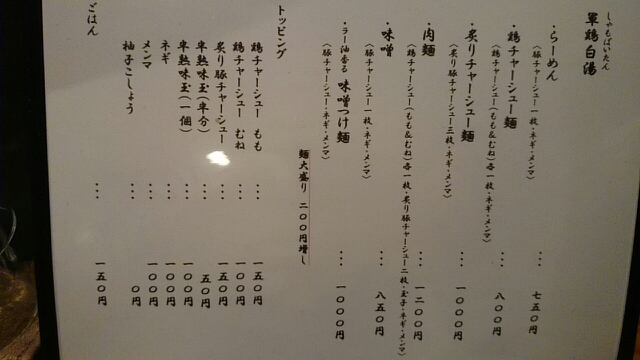 しゃもぱいたん
軍鶏白湯
・らーめん
(豚チャーシュー一枚・ネギ・メンマ)
… 七五〇円
・鶏チャーシュー麺
(鶏チャーシュー(もも&むね)各一枚・ネギ・メンマ)
… 八〇〇円
・炙りチャーシュー麺
(炙り豚チャーシュー三枚・ネギ・メンマ)
… 一〇〇〇円
・肉麺
(鶏チャーシュー(もも&むね)各一枚・炙り豚チャーシュー二枚・玉子・ネギ・メンマ)
… 一二〇〇円
・味噌
(豚チャーシュー一枚・ネギ・メンマ)
… 八五〇円
・ラー油香る 味噌つけ麺
(豚チャーシュー・ネギ・メンマ)
… 一〇〇〇円
麺大盛り 二〇〇円増し
トッピング
鶏チャーシュー もも … 一五〇円
鶏チャーシュー むね … 一〇〇円
炙り豚チャーシュー … 一五〇円
半熟味玉(半分) … 五〇円
半熟味玉(一個) … 一〇〇円
ネギ … 一〇〇円
メンマ … 一〇〇円
柚子こしょう … 〇円
ごはん … 一五〇円